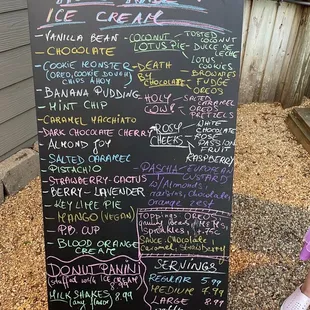 ICE CREAM
-VANILLA BEAN
-CHOCOLATE
-COOKIE MONSTER
(OREO, COOKIE DOUGH
CHIPS AHOY
-BANANA PUDDING
-MINT CHIP
-CARAMEL MACCHIATO
-DARK CHOCOLATE CHERRY
-ALMOND JOY
-SALTED CARAMEL
-PISTACHIO
-STRAWBERRY-CACTUS
-BERRY-LAVENDER
-KEY LIME PIE
-MANGO (VEGAN)
-P.B. CUP
-BLOOD ORANGE
CREAM
-COCONUT
LOTUS PIE
-TOSTED
COCONUT
-DULCE DE
LECHE
-LOTUS
COOKIES
-DEATH
BY
CHOCOLATE
-BROWNIES
-FUDGE
-OREO'S
-HOLY
COW!
-SALTED
CARAMEL
-OREO'S
-PRETZELS
-ROSY
CHEEKS
-WHITE
CHOCOLATE
-ROSE
-PASSION
FRUIT
-RASPBERRY
-PASCHA-EUROPEAN
CUSTARD
W/Almonds,
raisins, chocolate,
orange zest
Toppings: OREO'S
Sprinkles,
SAUCE: Chocolate
Caramel, Strawberry
DONUT PANINI
Stuffed with ICE CREAM
MILK SHAKES 8.99
any flavor
SERVINGS
REGULAR 5.99
MEDIUM 7.99
LARGE 8.99